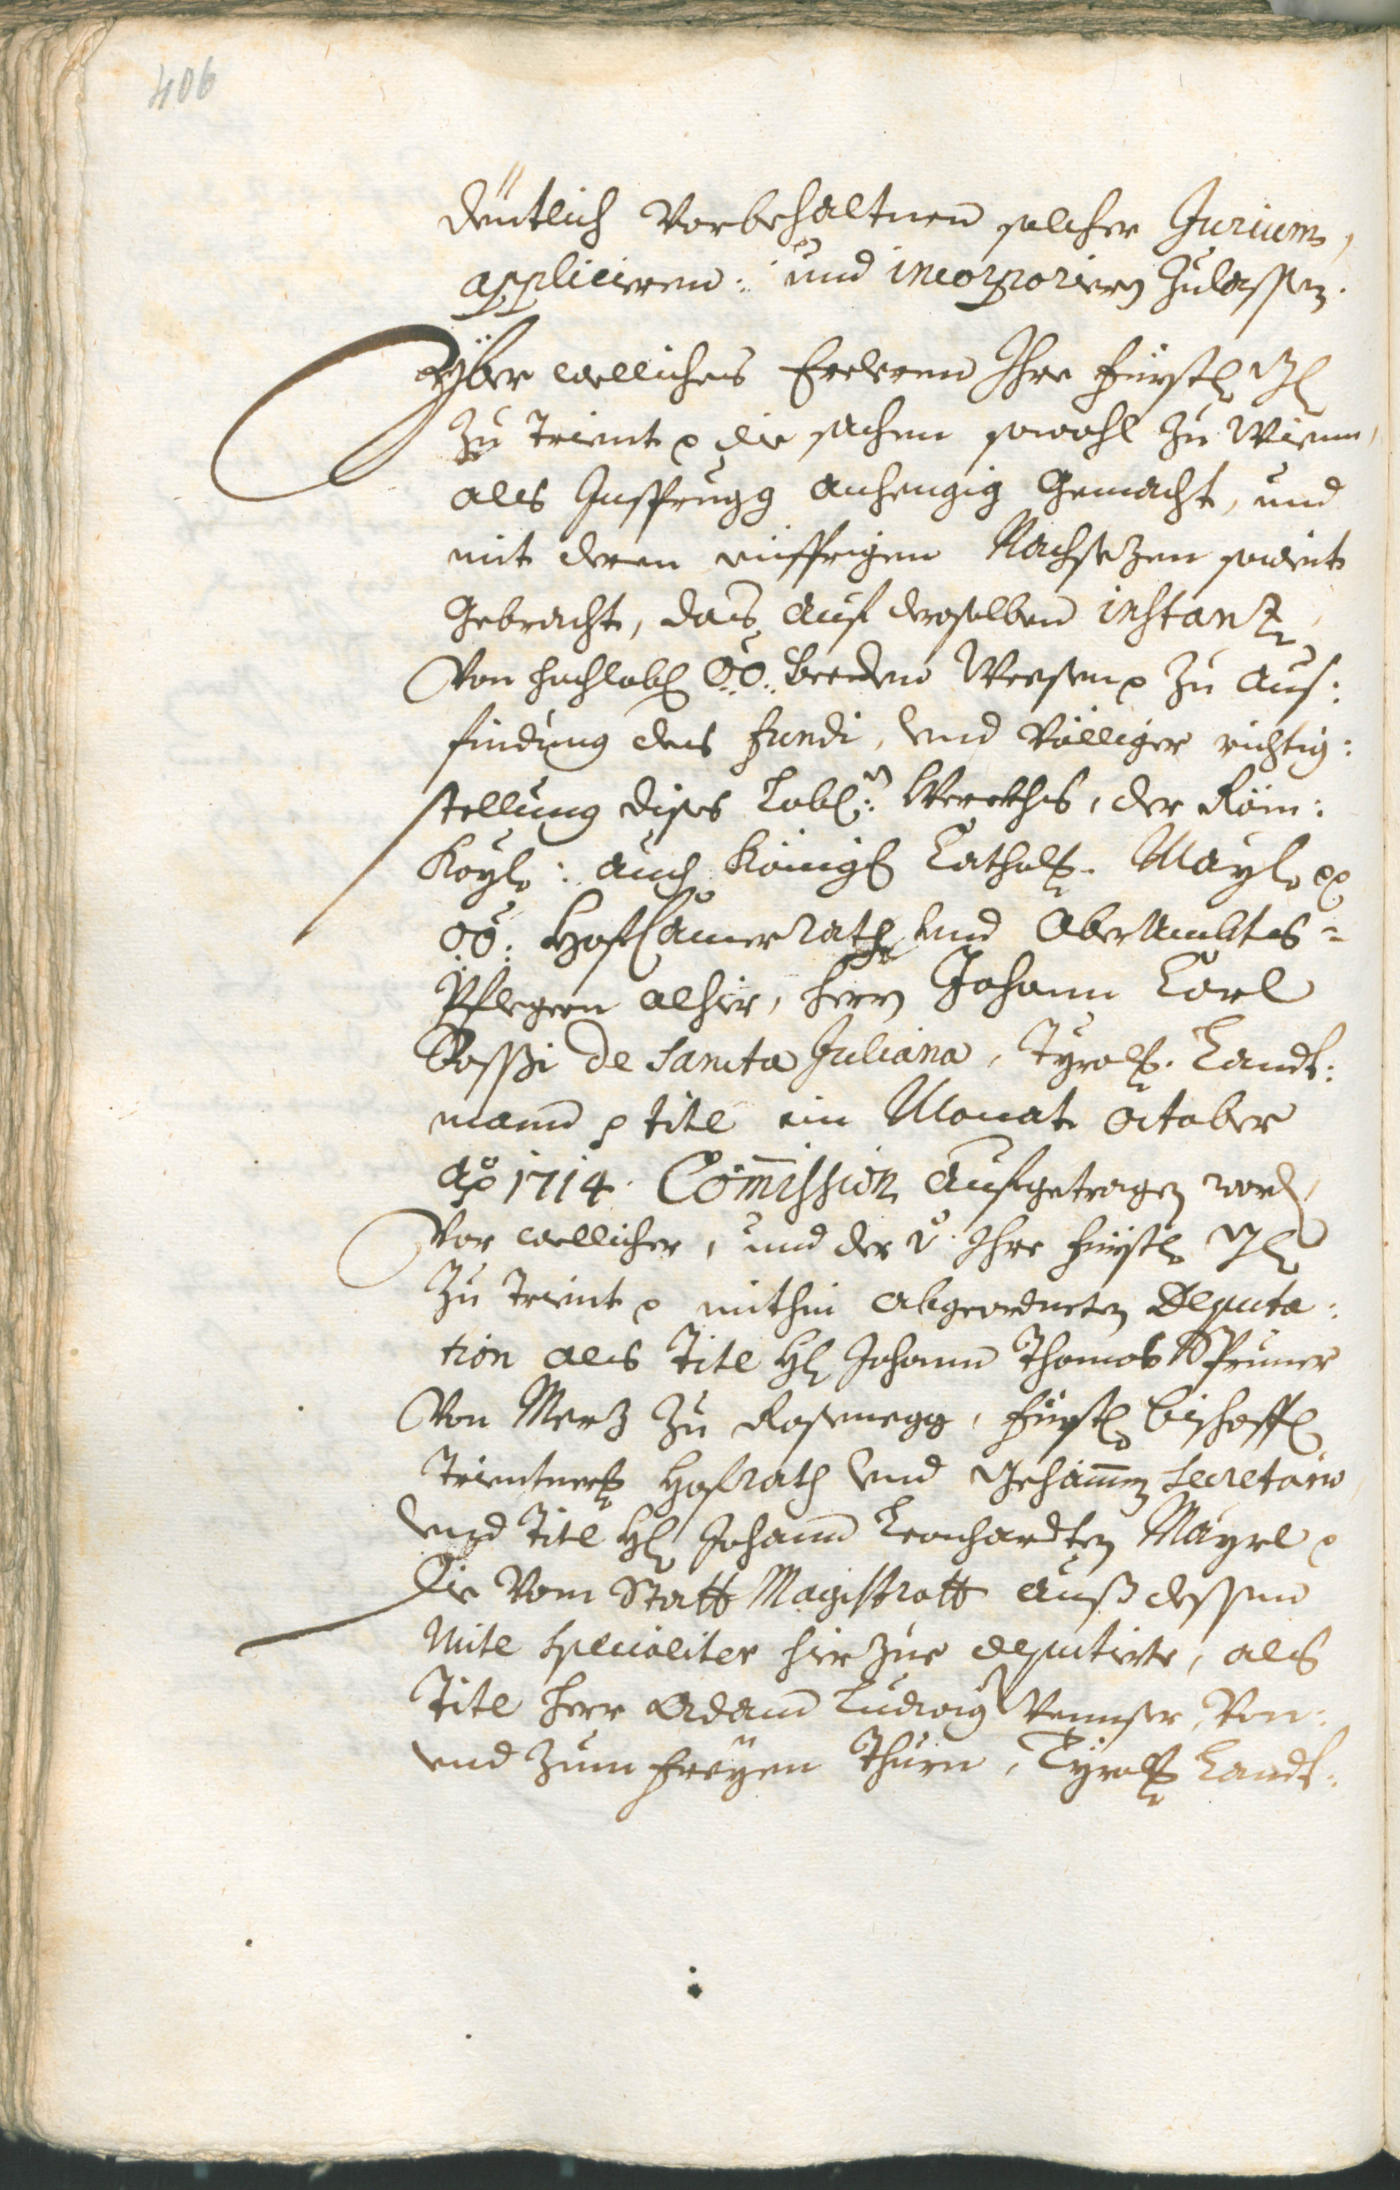 406
deutlich Vorbehaltnen solcher Jurium,
appliciren: und incorporiern Zulassen.
Yber welliches Ihre fürstl: Gl:
Zu Trient p die sachen sowohl Zu Wienn,
als Insprugg anhengig Gemacht, und
mit deren eiffrigen Nachsezen soweit
Gebracht, das auf deroselben instanz
Von hochlobl: OÖ: Weesen p Zu aus:
findung des fundi, und völliger richtig:
stellung dises Lobl:n Werckhs, der Röm:
Kayl: auch Königl: Catholl: Mayl: pp
OÖ: HofCamerrath und OberAmbts=
Pflegern alhir, herrn Johann Carl
Rossi de Sancta Juliana, Tyroll: Landt:
mann p titl im Monat October
Ao 1714. Commission aufgetragen word:,
Vor wellicher, und der v: Ihre fürstl: Gl:
Zu Trient p mithin abgeordneten Deputa:
tion als Titl H: Johann Thomas Spruner
Von Merz Zu Rosenegg, fürstl: bischoffl:
Trientnerl: Hofrath und Gehaimen Secretario,
und Titl H: Johann Leonhardten Mayrl p
Die Vom Statt Magistratt auß dessen
Mitl specialiter hierzue deputirte, als
Titl herr Adam Ludwig Vennser, Von:
und Zum freyen Thurn, Tyroll: Landt: